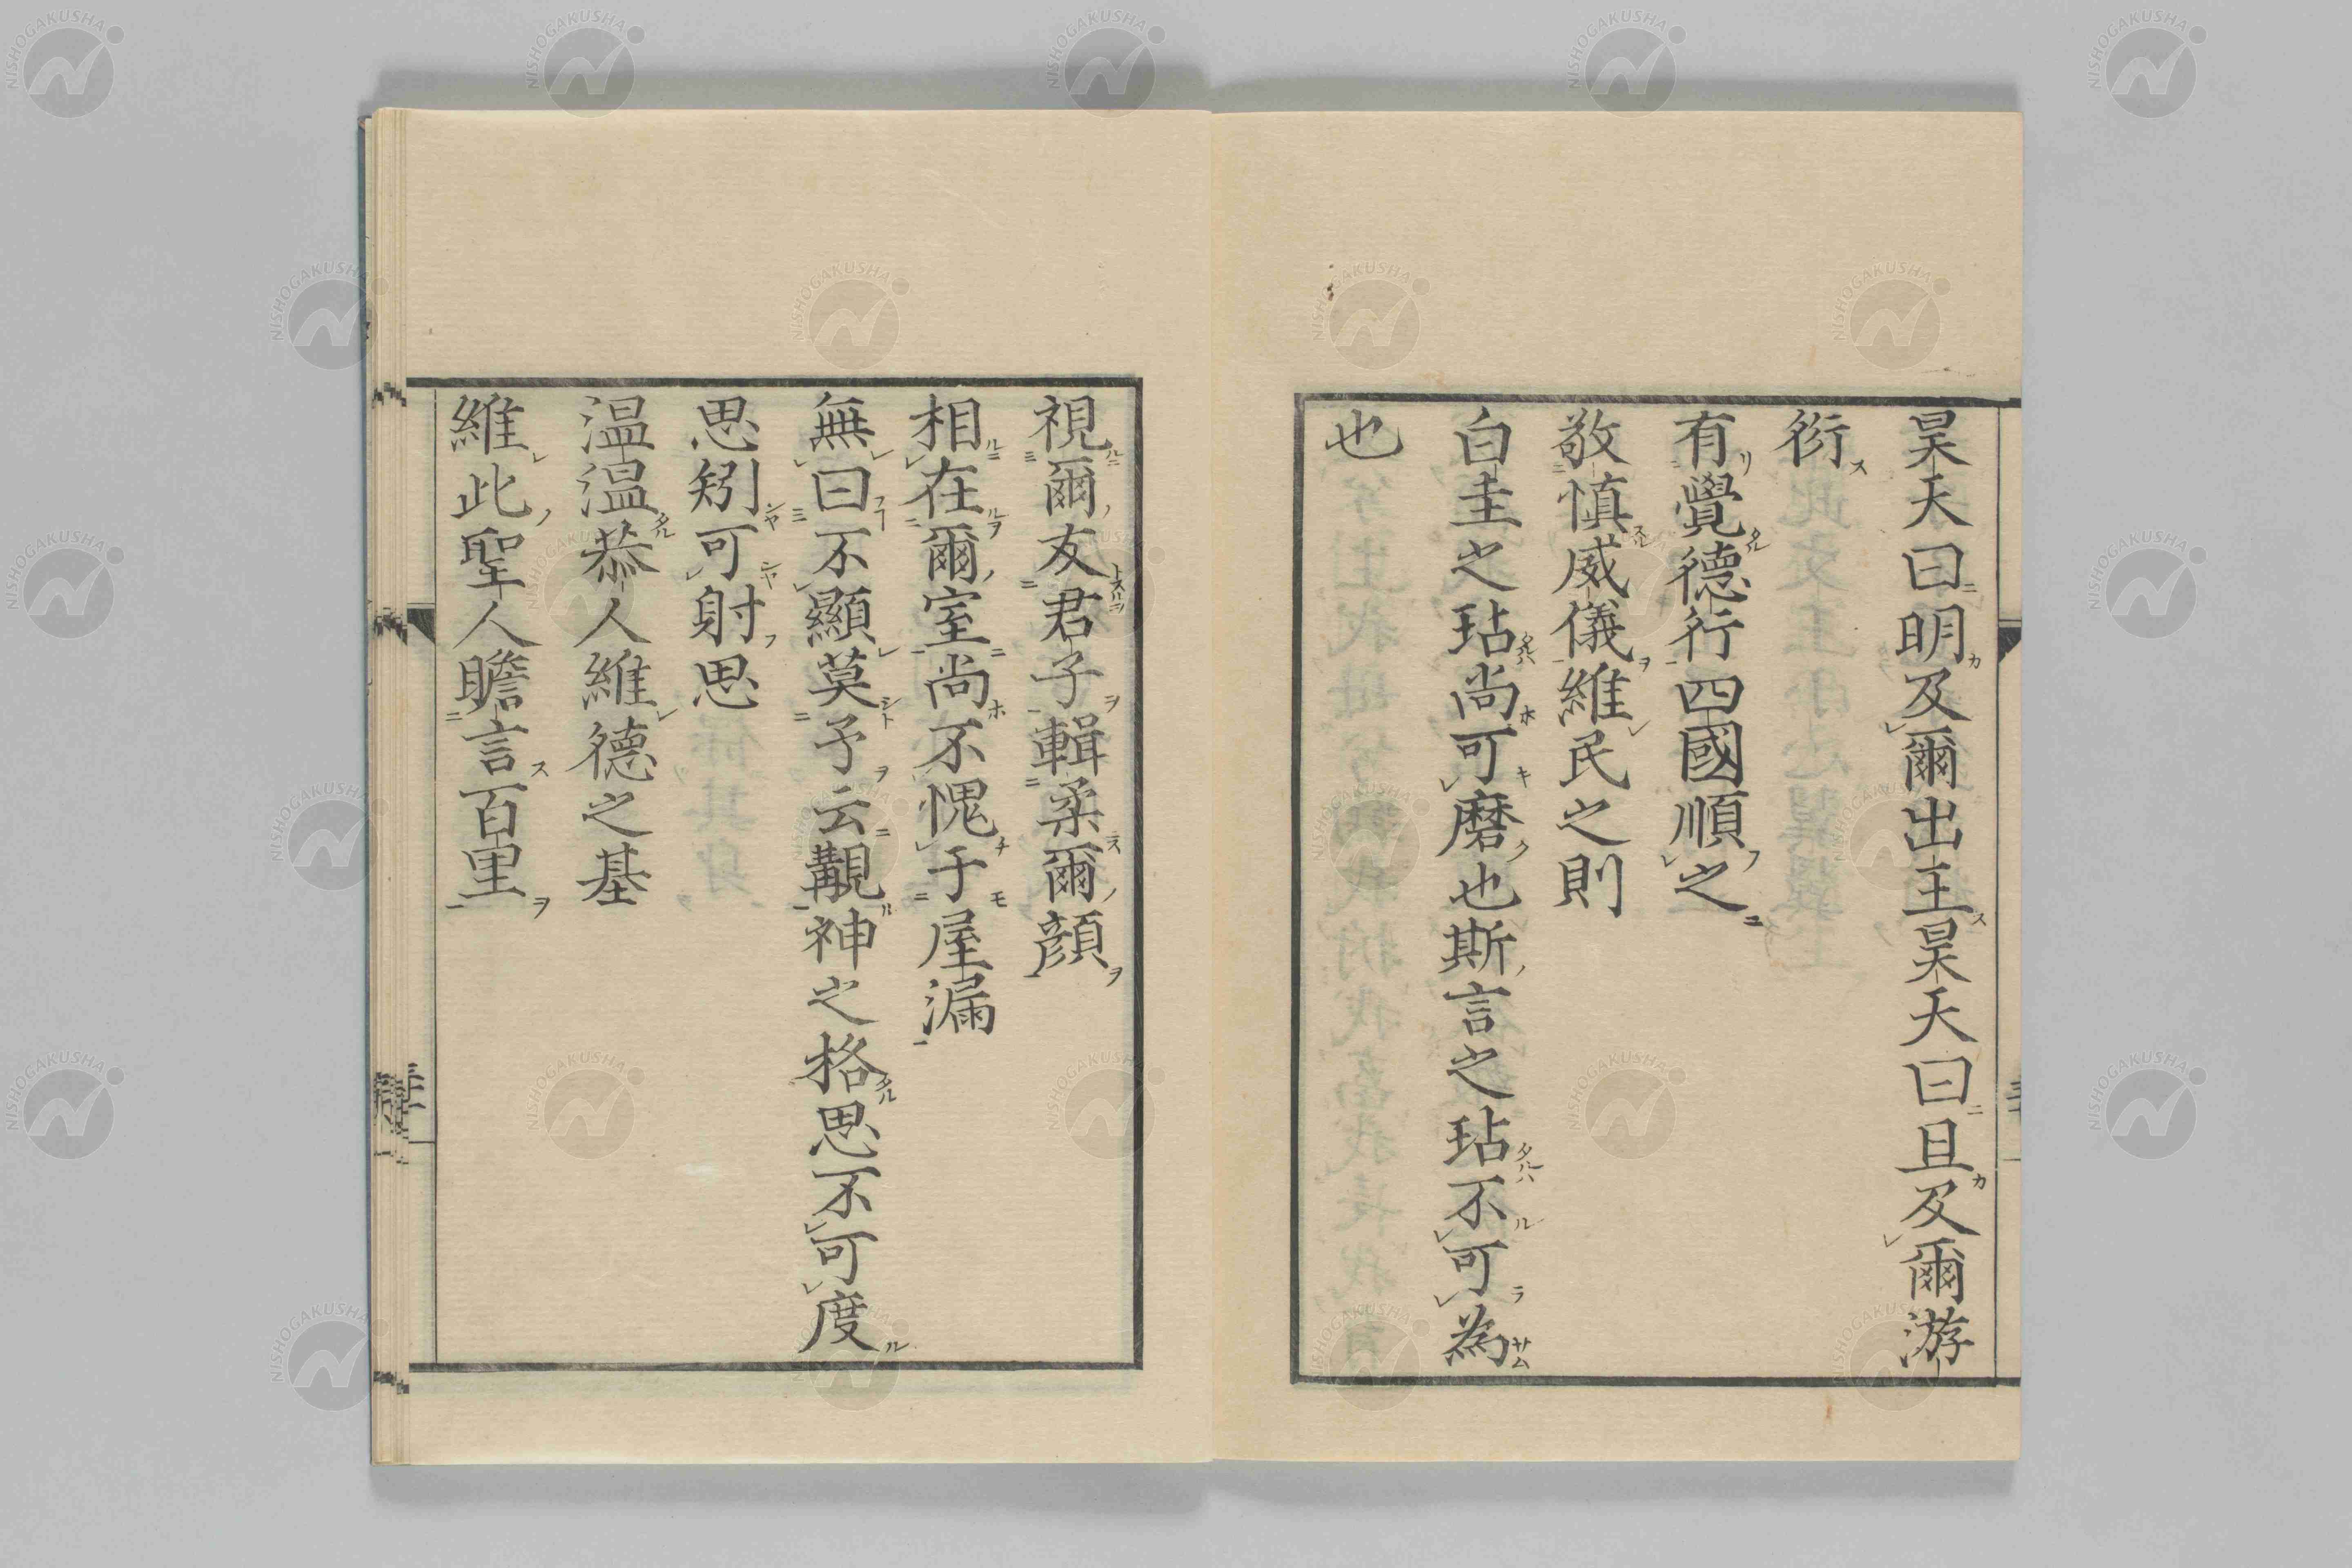 昊天曰明及爾出王昊天曰旦及爾游
衍
有覺德行四國順之
敬慎威儀維民之則
白圭之玷尚可磨也斯言之玷不可為
也
視爾友君子輯柔爾顏
相在爾室尚不愧于屋漏
無曰不顯莫予云覯神之格思不可度
思矧可射思
溫溫恭人維德之基
維此聖人瞻言百里
NISHOGAKUSHA